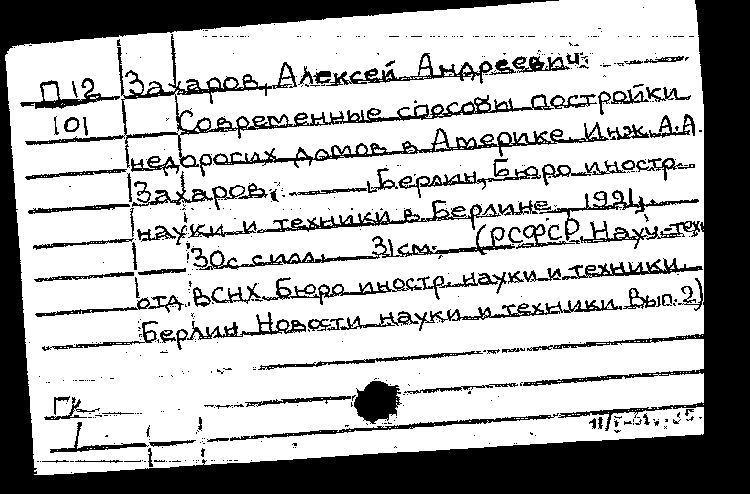 П 12 Захаров, Алексей Андреевич.
101 Современные способы постройки
недорогих домов в Америке. Инж. А.А.
Захаров. Берлин, Бюро иностр.
науки и техники в Берлине, 1921.
30 с илл. 31 см. (РСФСР. Науч.-техн
отд ВСНХ Бюро иностр. науки и техники.
Берлин. Новости науки и техники. Вып. 2)